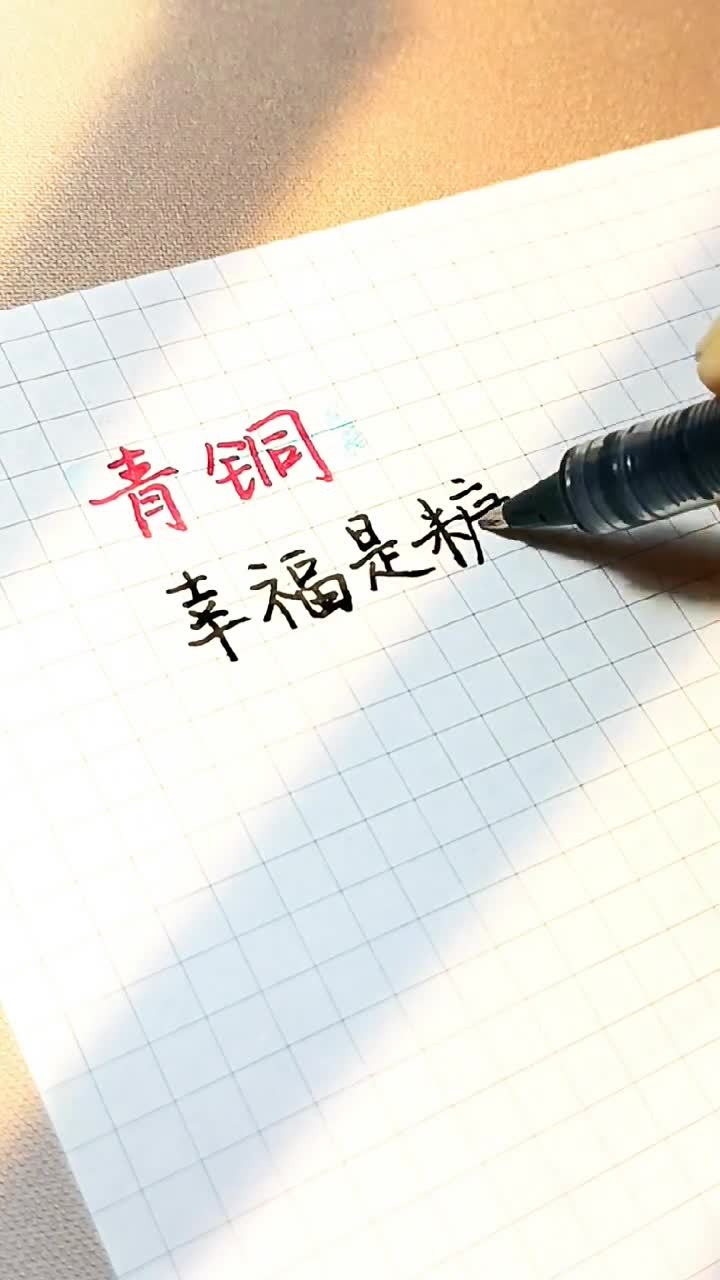 青铜
幸福是糖